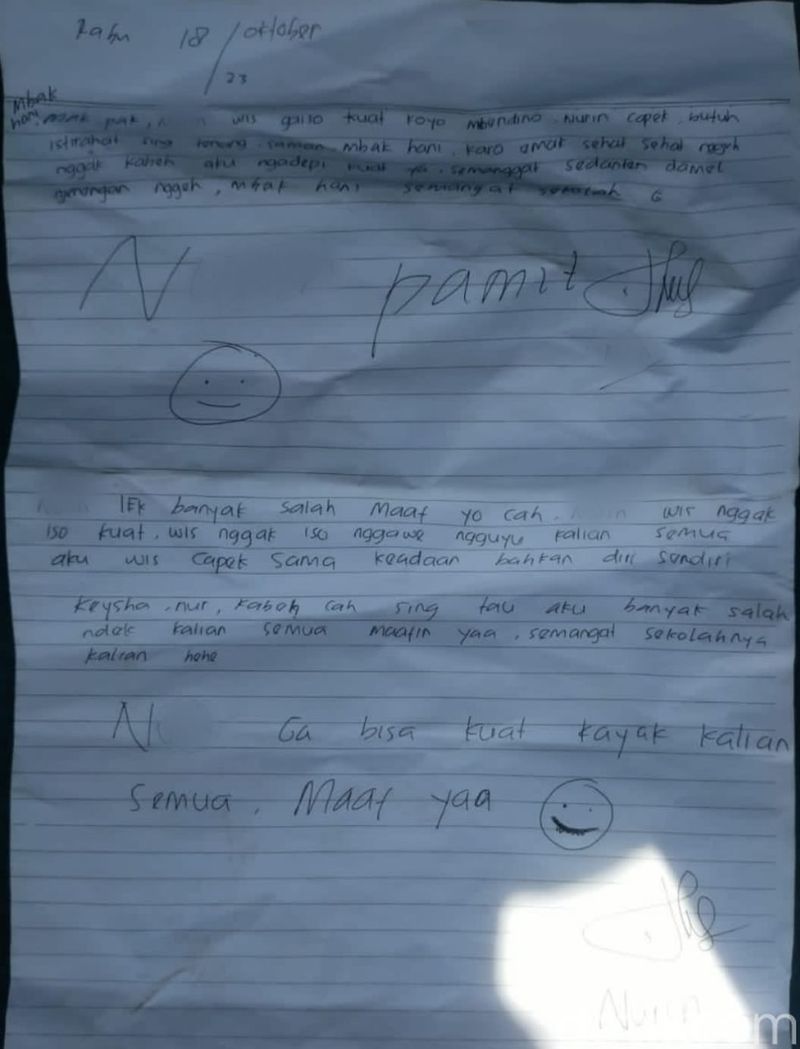 Rabu 18 / oktober
23
Mbak
hani, pak, wis gaiso kuat koyo mbendino. Nurin capek, butuh
istirahat sing tenang. saman mbak hani, karo emak sehat sehat nggih
nggak kabeh aku ngadepi kuat ya. semanggat sedanten damel
nggeh, mbak hani semangat
N pamit
IEk banyak salah Maaf yo cah. wis nggak
iso kuat. wis nggak iso nggawe ngguyu kalian semua
aku wis capek sama keadaan bahkan diri sendiri
Keysha, nur, kabeh cah sing tau aku banyak salah
ndek kalian semua maafin yaa, semangat sekolahnya
kalian hehe
N Ga bisa kuat kayak kalian
semua. Maaf yaa
Nurin
m